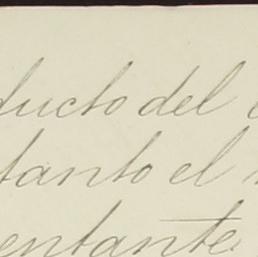 ducto del
tanto el
entante